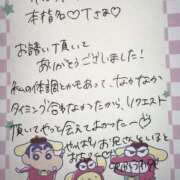 本指名♡Tさま♡
お誘い頂いて
ありがとうございました!
私の体調とかもあって、なかなか
タイミング合わなかったから、リクエスト
頂いてやっと会えてよかった〜
やっぱり お兄さんといると